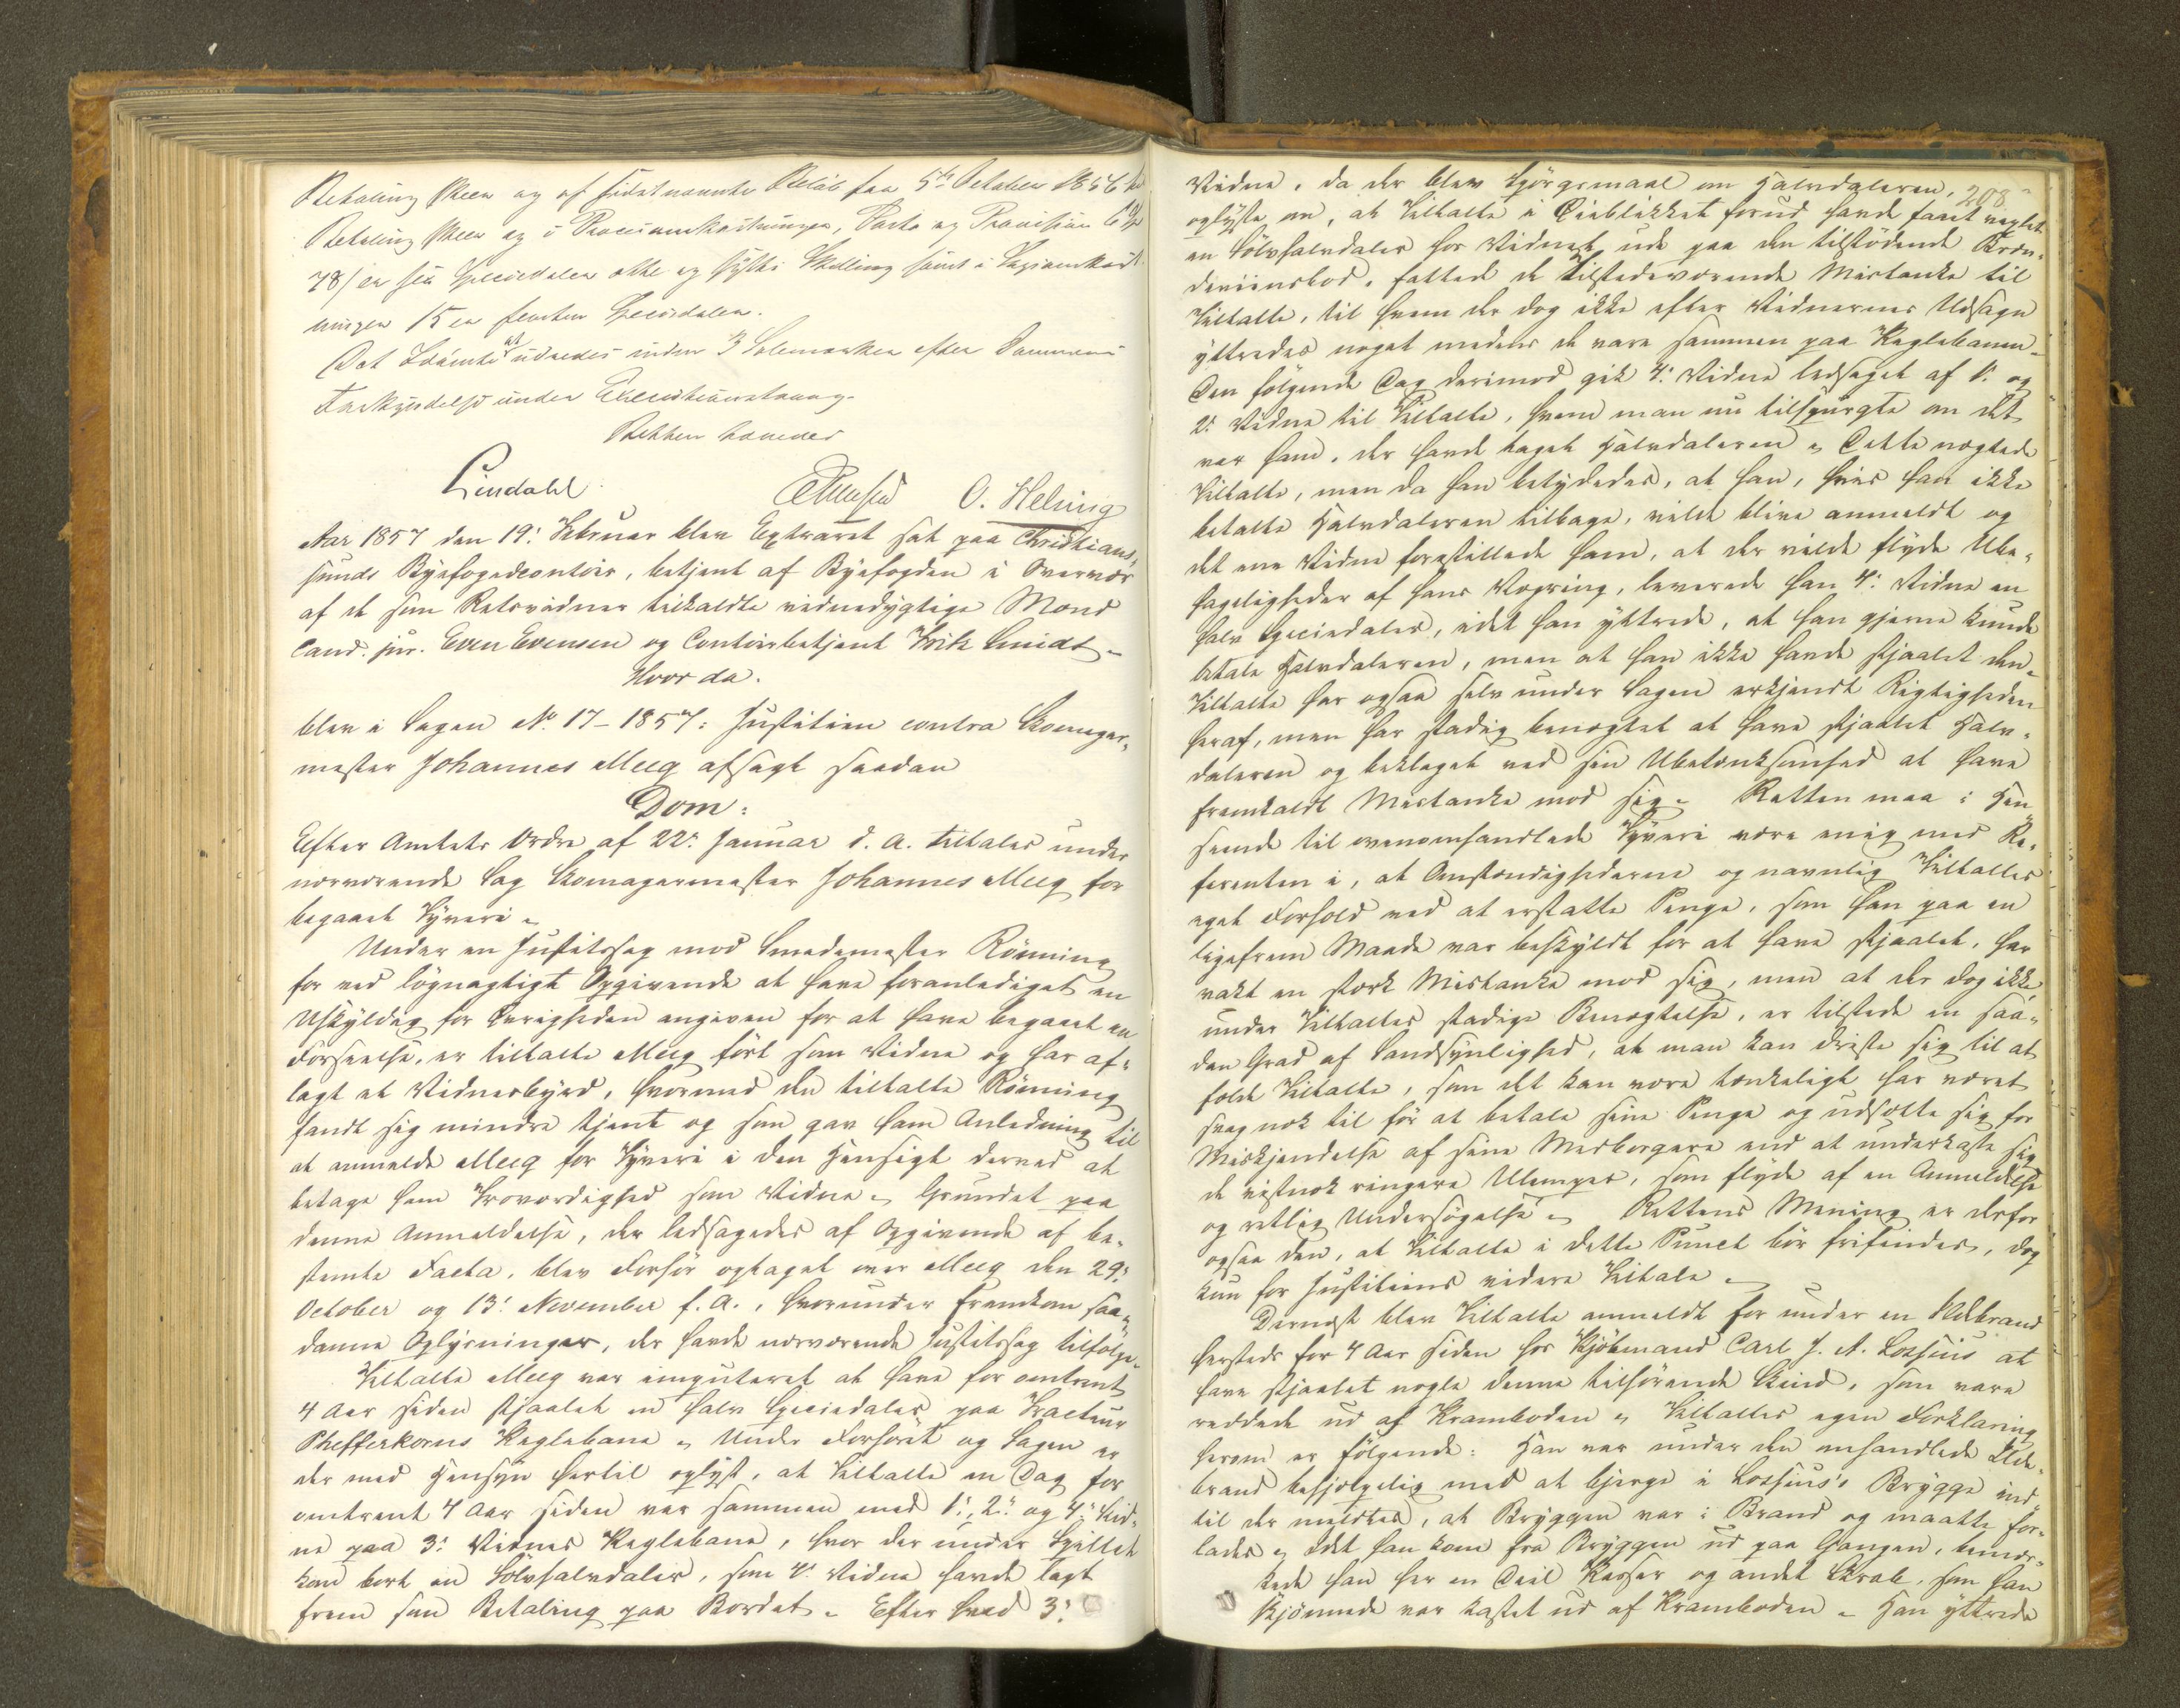 Betaling skeer og af sidstnævnte Beløb fra 5te October 1856 til
Betaling skeer og i Procesomkostninger, Porto og Provision 6 Spd
78 s er sex Speciedaler otte og sytti Skilling samt i Sagsomkost-
ninger 15 er femten Speciedaler.
Det Idømte at udredes inden 3 Solemærker efter Dommens
Forkyndelse under Executionstvang.
Retten hævedes
Lindahl. O. Helsing
Aar 1857 den 19: Februar blev Extraret sat paa Christian-
sunds Byefogedcontoir, betjent af Byefogden i Overvær
af de som Retsvidner tilkaldte vidnedygtige Mænd
Cand. jur. Even Evensen og Contoirbetjent Fritz Smidt –
Hvor da.
blev i Sagen No 17 – 1857: Justitien contra Skomager-
mester Johannes Meeg afsagt saadan
Dom:
Efter Amtets Ordre af 22: Januar d. A. tiltales under
nærværende Sag Skomagermester Johannes Meeg for
begaaet Tyveri –
Under en Justitssag mod Smedemester Rönning
for ved lögnagtigt Opgivende at have foranlediget en
Uskyldig for Øvrigheden angiven for at have begaaet en
Forseelse, er tiltalte Meeg fört som Vidne og har af-
lagt et Vidnesbyrd, hvormed den tiltalte Rönning
fandt sig mindre tjent og som gav ham Anledning til
at anmelde Meeg for Tyveri i den Hensigt derved at
betage ham Troværdighed som Vidne – Grundet paa
denne Anmeldelse, der ledsagedes af Opgivende af be-
stemte Facta, blev Forhör optaget over Meeg den 29:
October og 13: November f. A., hvorunder fremkom saa-
danne Oplysninger, der havde nærværende Justitssag tilfölge.
Tiltalte Meeg var imputeret at have for omtrent
4 Aar siden stjaalet en halv Speciedaler paa Tracteur
Phefferkorns Keglebane – Under Forhöret og Sagen er
der med Hensyn hertil oplyst, at Tiltalte en Dag for
omtrent 4 Aar siden var sammen med 1:, 2: og 4: Vid-
ne paa 3: Vidnes Keglebane, hvor der under Spillet
kom bort en Sölvhalvdaler, som 4: Vidne havde lagt
frem som Betaling paa Bordet – Efter hvad 3:
208
Vidne, da der blev Spörgsmaal om Halvdaleren,
oplyste om, at Tiltalte i Öieblikket forud havde faaet vexlet
en Sölvhalvdaler hos Vidnet ude paa den tilstödende Bræn-
deviinsbod, fattede de Tilstedeværende Mistanke til
Tiltalte, til hvem der dog ikke efter Vidnernes Udsagn
yttredes noget medens de vare sammen paa Keglebanen –
Den fölgende Dag derimod gik 4: Vidne ledsaget af 1: og
2: Vidne til Tiltalte, hvem man nu tilspurgte om det
var ham, der havde taget Halvdaleren – Dette nægtede
Tiltalte, men da han betydedes, at han, hvis han ikke
betalte Halvdaleren tilbage, vilde blive anmeldt og
det ene Vidne forestillede ham, at der vilde flyde Ube-
hageligheder af hans Vægring, leverede han 4: Vidne en
halv Speciedaler, idet han yttrede, at han gjerne kunde
betale Halvdaleren, men at han ikke havde stjaalet den –
Tiltalte har ogsaa selv under Sagen erkjendt Rigtigheden
heraf, men har stadig benægtet at have stjaalet Halv-
daleren og beklaget ved sin Ubetænksomhed at have
fremkaldt Mistanke mod sig – Retten maa i Hen-
seende til ovenomhandlede Tyveri være enig med Re-
ferenten i, at Omstændighederne og navnlig Tiltaltes
eget Forhold ved at erstatte Penge, som han paa en
ligefrem Maade var beskyldt for at have stjaalet, har
vakt en stærk Mistanke mod sig, men at der dog ikke
under Tiltaltes stadige Benægtelse, er tilstede en saa-
dan Grad af Sandsynlighed, at man kan driste sig til at
fælde Tiltalte, som det kan være tænkeligt har været
svag nok til för at betale sine Penge og udsætte sig for
Miskjendelse af sine Medborgere end at underkaste sig
de vistnok ringere Ulemper, som flyde af en Anmeldelse
og retlig Undersögelse – Rettens Mening er derfor
ogsaa den, at Tiltalte i dette Punct bör frifindes, dog
kun for Justitiens videre Tiltale –
Dernæst blev Tiltalte anmeldt for under en Ildebrand
hersteds for 4 Aar siden hos Kjöbmand Carl J. A. Lossius at
have stjaalet nogle denne tilhörende Skind, som vare
reddede ud af Kramboden – Tiltaltes egen Forklaring
herom er fölgende: Han var under den omhandlede Ilde-
brand behjælpelig med at bjerge i Lossius's Brygge ind-
til der meldtes, at Bryggen var i Brand og maatte for-
lades – Idet han kom fra Bryggen ud paa Gangen, bemær-
kede han her en Deel Kasser og andet Skrab, som han
skjönnede var kastet ud af Kramboden – Han yttrede